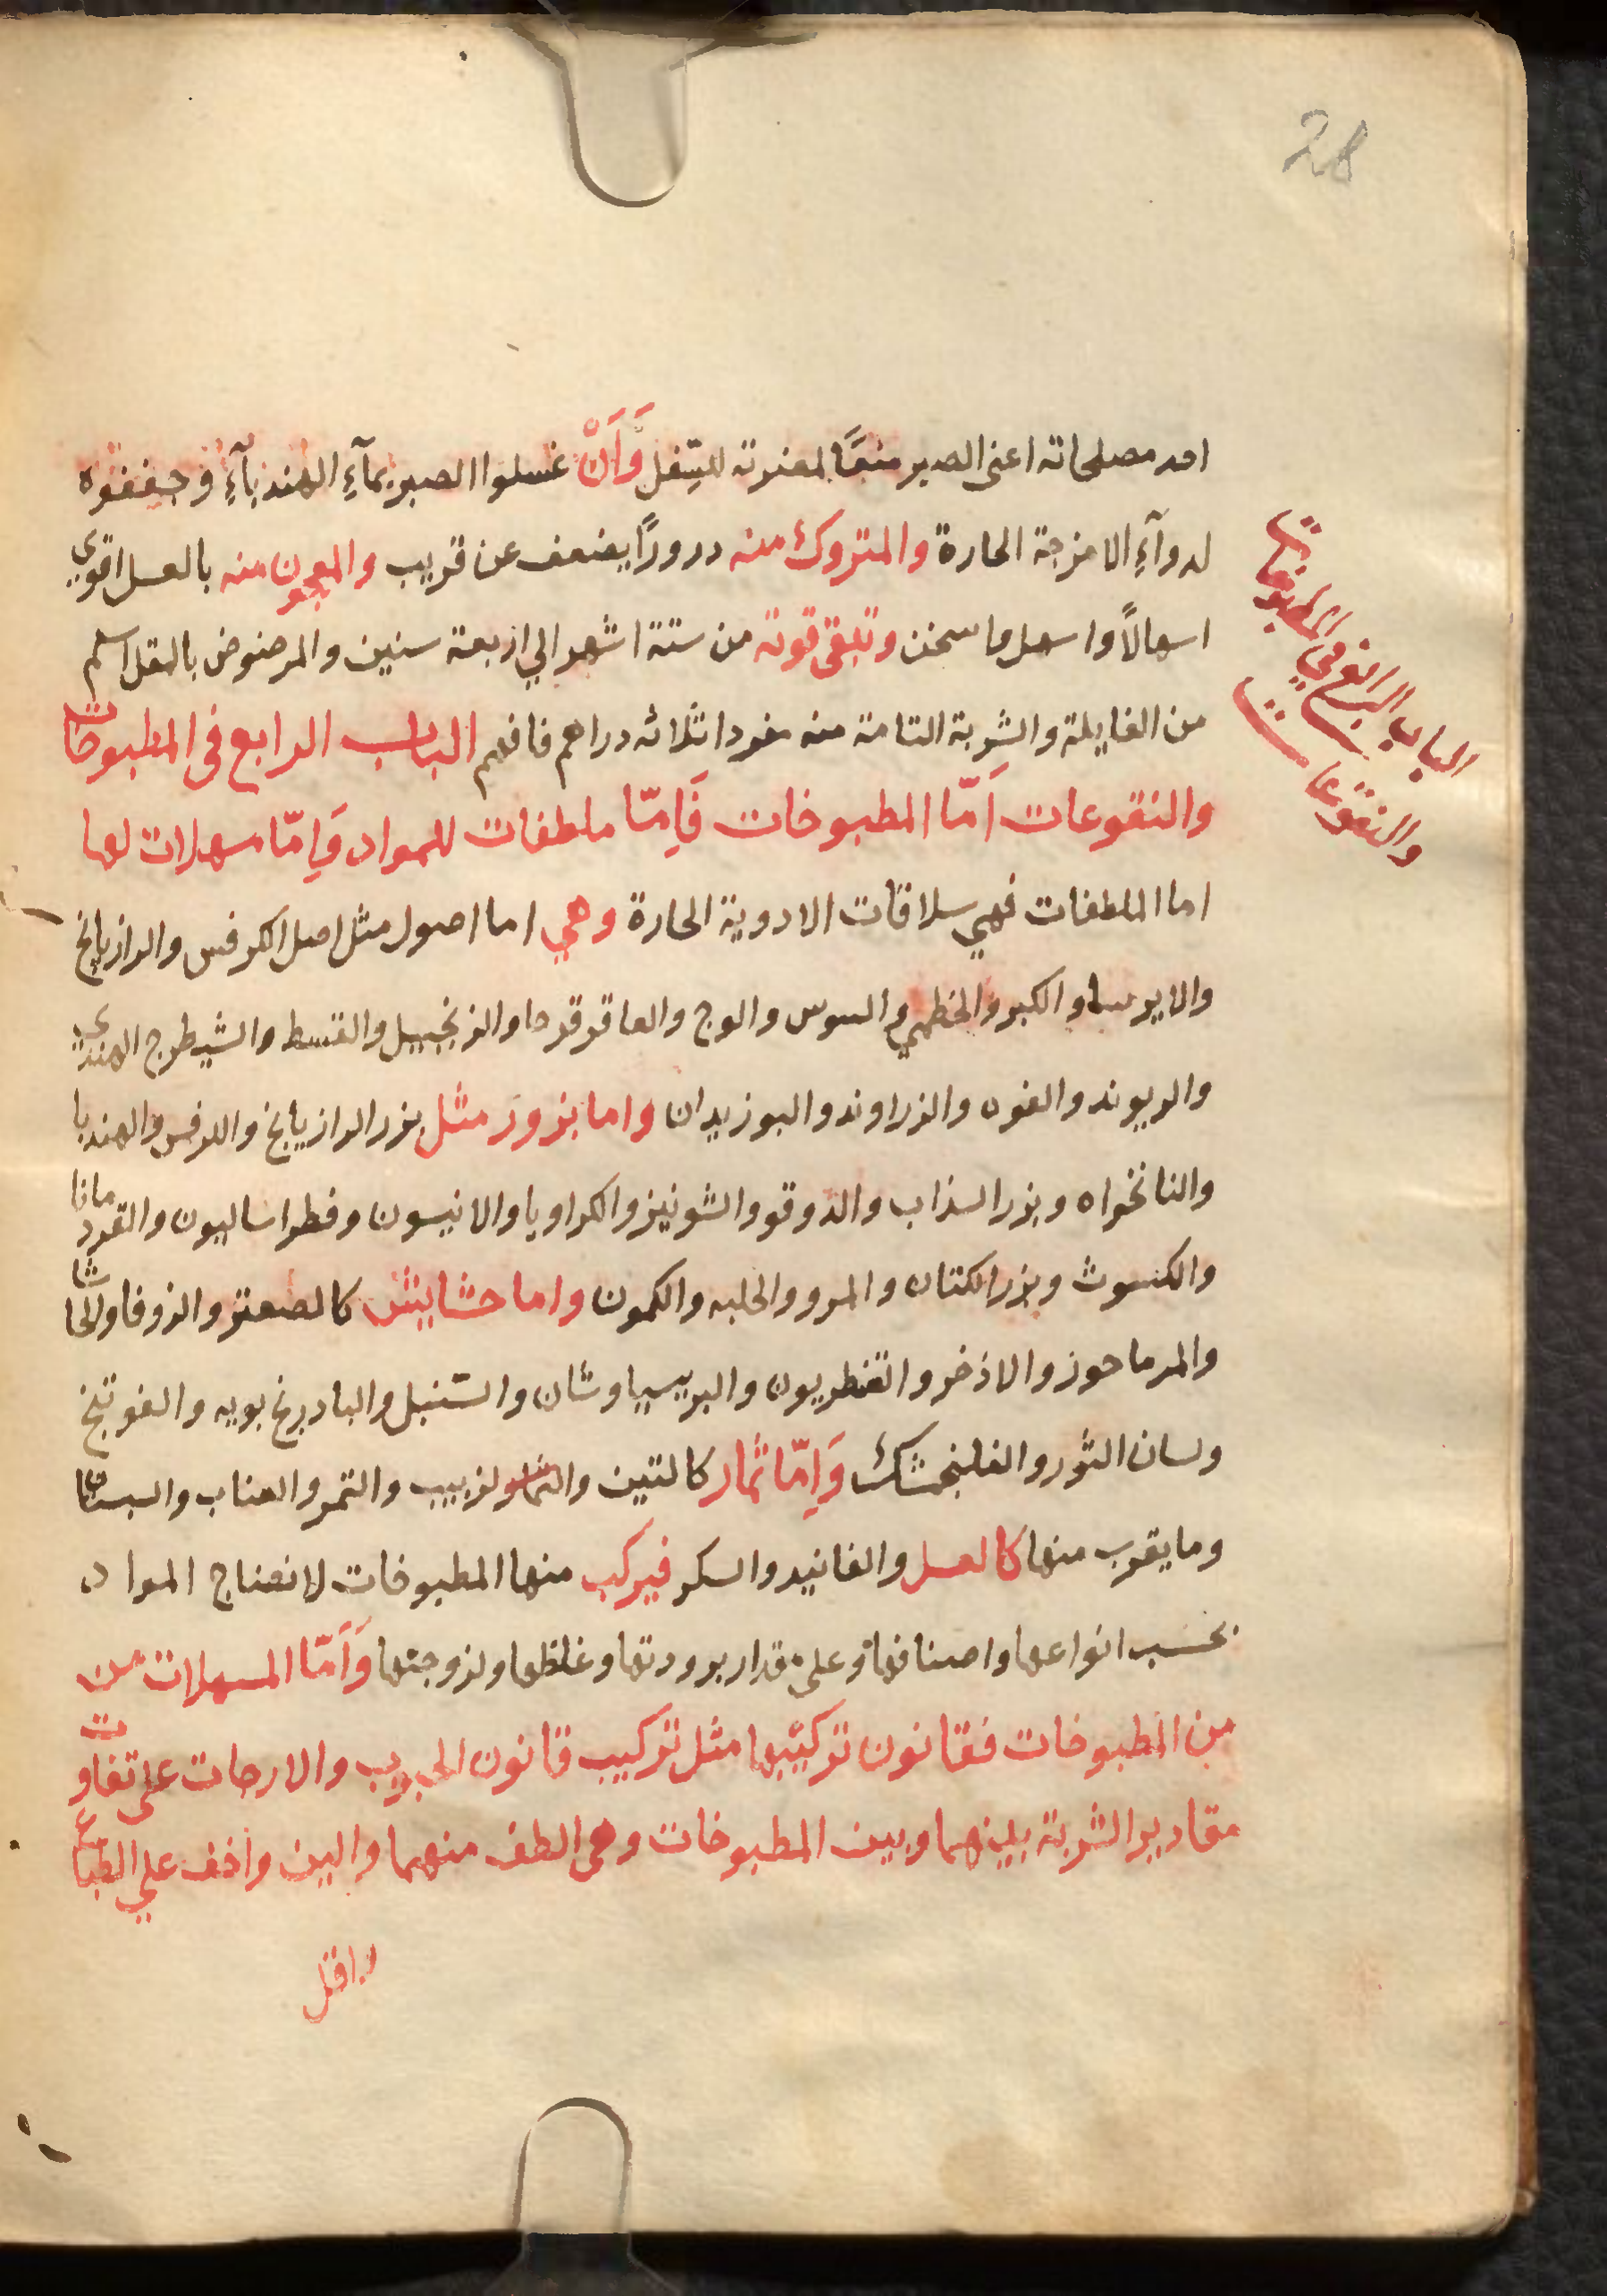 28
احد مصلحاته اعنى الصبر منعًا لمضرته للسفل وَأَنْ غسلوا الصبر بمآءِ الهندبآءِ وجففوه
لدوآءِ الامزجة الحارة والمتروك منه دروراً يضعف عن قريب والمعجون منه بالعسل اقوي
اسهالاً واسهل ما سخن وتبقى قوته من ستة اشهر الي اربعة سنين والمرضوض بالمقل اسلم
من الغايلة والشربة التامة منه مفردا ثلاثه دراهم فافهم الباب الرابع في المطبوخات
والنقوعات اَمّا المطبوخات فَاِمّا ملطفات للمواد وَاِمّا مسهلات لها
اما الملطفات فهي سلاقات الادوية الحارة وهي اما اصول مثل اصل الكرفس والرازيانج
والايرسا والكبر والخطمي والسوس والوج والعاقرقرحا والزنجبيل والقسط والشيطرج الهندي
والريوند والفوه والزراوند والبوزيدان واما بزور مثل بزر الرازيانج والكرفس والهندبا
والنانخواه وبزر السذاب والدوقو والشونيز والكراويا والانيسون وفطراساليون والقردمانا
والكسوث وبزر الكتان والمرو والحلبه والكمون واما حشايش كالصعتر والزوفا والحاشا
والمرماحوز والاذخر والقنطريون والبرسياوشان والسنبل والبادرنجبويه والفوتنج
ولسان الثور والفلنجمشك وَاِمّا ثمار كالتين والزبيب والتمر والعناب والسبستان
وما يقرب منها كالعسل والفانيد والسكر فيركب منها المطبوخات لانضاج المواد
بحسب انواعها واصنافها وعلى مقدار برودتها وغلظها ولزوجتها وَاَمّا المسهلات من
من المطبوخات فقانون تركيبها مثل تركيب قانون الحبوب والارحات على تفاوت
مقادير الشربة بينهما وبين المطبوخات وهى الطف منهما والين واخف علي الطباع
واقل
الباب الرابع في المطبوخات
والنقوعات